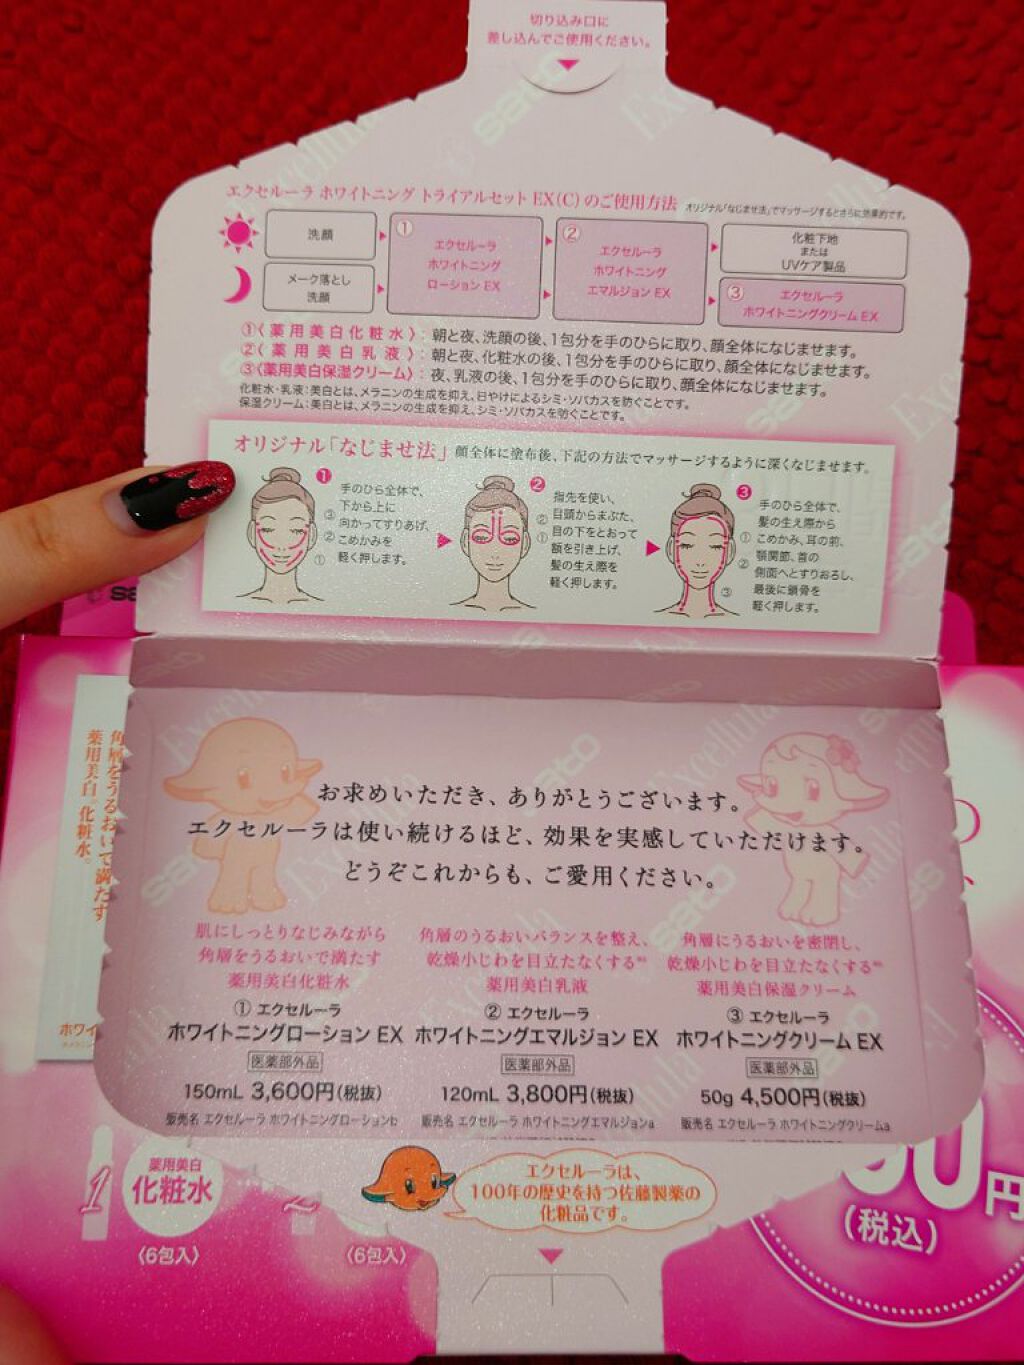 切り込み口に
差し込んでご使用ください。
エクセルーラ ホワイトニング トライアルセット EX(C)のご使用方法
オリジナル「なじませ法」でマッサージするとさらに効果的です。
洗顔
メーク落とし
洗顔
①
エクセルーラ
ホワイトニング
ローション EX
②
エクセルーラ
ホワイトニング
エマルジョン EX
化粧下地
または
UVケア製品
③ エクセルーラ
ホワイトニングクリーム EX
①〈薬用美白化粧水〉: 朝と夜、洗顔の後、1包分を手のひらに取り、顔全体になじませます。
②〈薬用美白乳液〉: 朝と夜、化粧水の後、1包分を手のひらに取り、顔全体になじませます。
③〈薬用美白保湿クリーム〉: 夜、乳液の後、1包分を手のひらに取り、顔全体になじませます。
化粧水・乳液:美白とは、メラニンの生成を抑え、日やけによるシミ・ソバカスを防ぐことです。
保湿クリーム:美白とは、メラニンの生成を抑え、シミ・ソバカスを防ぐことです。
オリジナル「なじませ法」 顔全体に塗布後、下記の方法でマッサージするように深くなじませます。
❶
手のひら全体で、
下から上に
向かってすりあげ、
こめかみを
軽く押します。
③
②
①
❷
指先を使い、
目頭からまぶた、
目の下をとおって
額を引き上げ、
髪の生え際を
軽く押します。
②
①
❸
手のひら全体で、
髪の生え際から
こめかみ、耳の前、
顎関節、首の
側面へとすりおろし、
最後に鎖骨を
軽く押します。
①
②
③
お求めいただき、ありがとうございます。
エクセルーラは使い続けるほど、効果を実感していただけます。
どうぞこれからも、ご愛用ください。
肌にしっとりなじみながら
角層をうるおいで満たす
薬用美白化粧水
① エクセルーラ
ホワイトニングローション EX
医薬部外品
150mL 3,600円(税抜)
販売名 エクセルーラ ホワイトニングローションb
角層のうるおいバランスを整え、
乾燥小じわを目立たなくする
薬用美白乳液
② エクセルーラ
ホワイトニングエマルジョン EX
医薬部外品
120mL 3,800円(税抜)
販売名 エクセルーラ ホワイトニングエマルジョンa
角層にうるおいを密閉し、
乾燥小じわを目立たなくする
薬用美白保湿クリーム
③ エクセルーラ
ホワイトニングクリーム EX
医薬部外品
50g 4,500円(税抜)
販売名 エクセルーラ ホワイトニングクリームa
角層をうるおいで満たす
薬用美白 化粧水。
ホワイ
1
薬用美白
化粧水
〈6包入〉
〈6包入〉
エクセルーラは、
100年の歴史を持つ佐藤製薬の
化粧品です。
円
(税込)